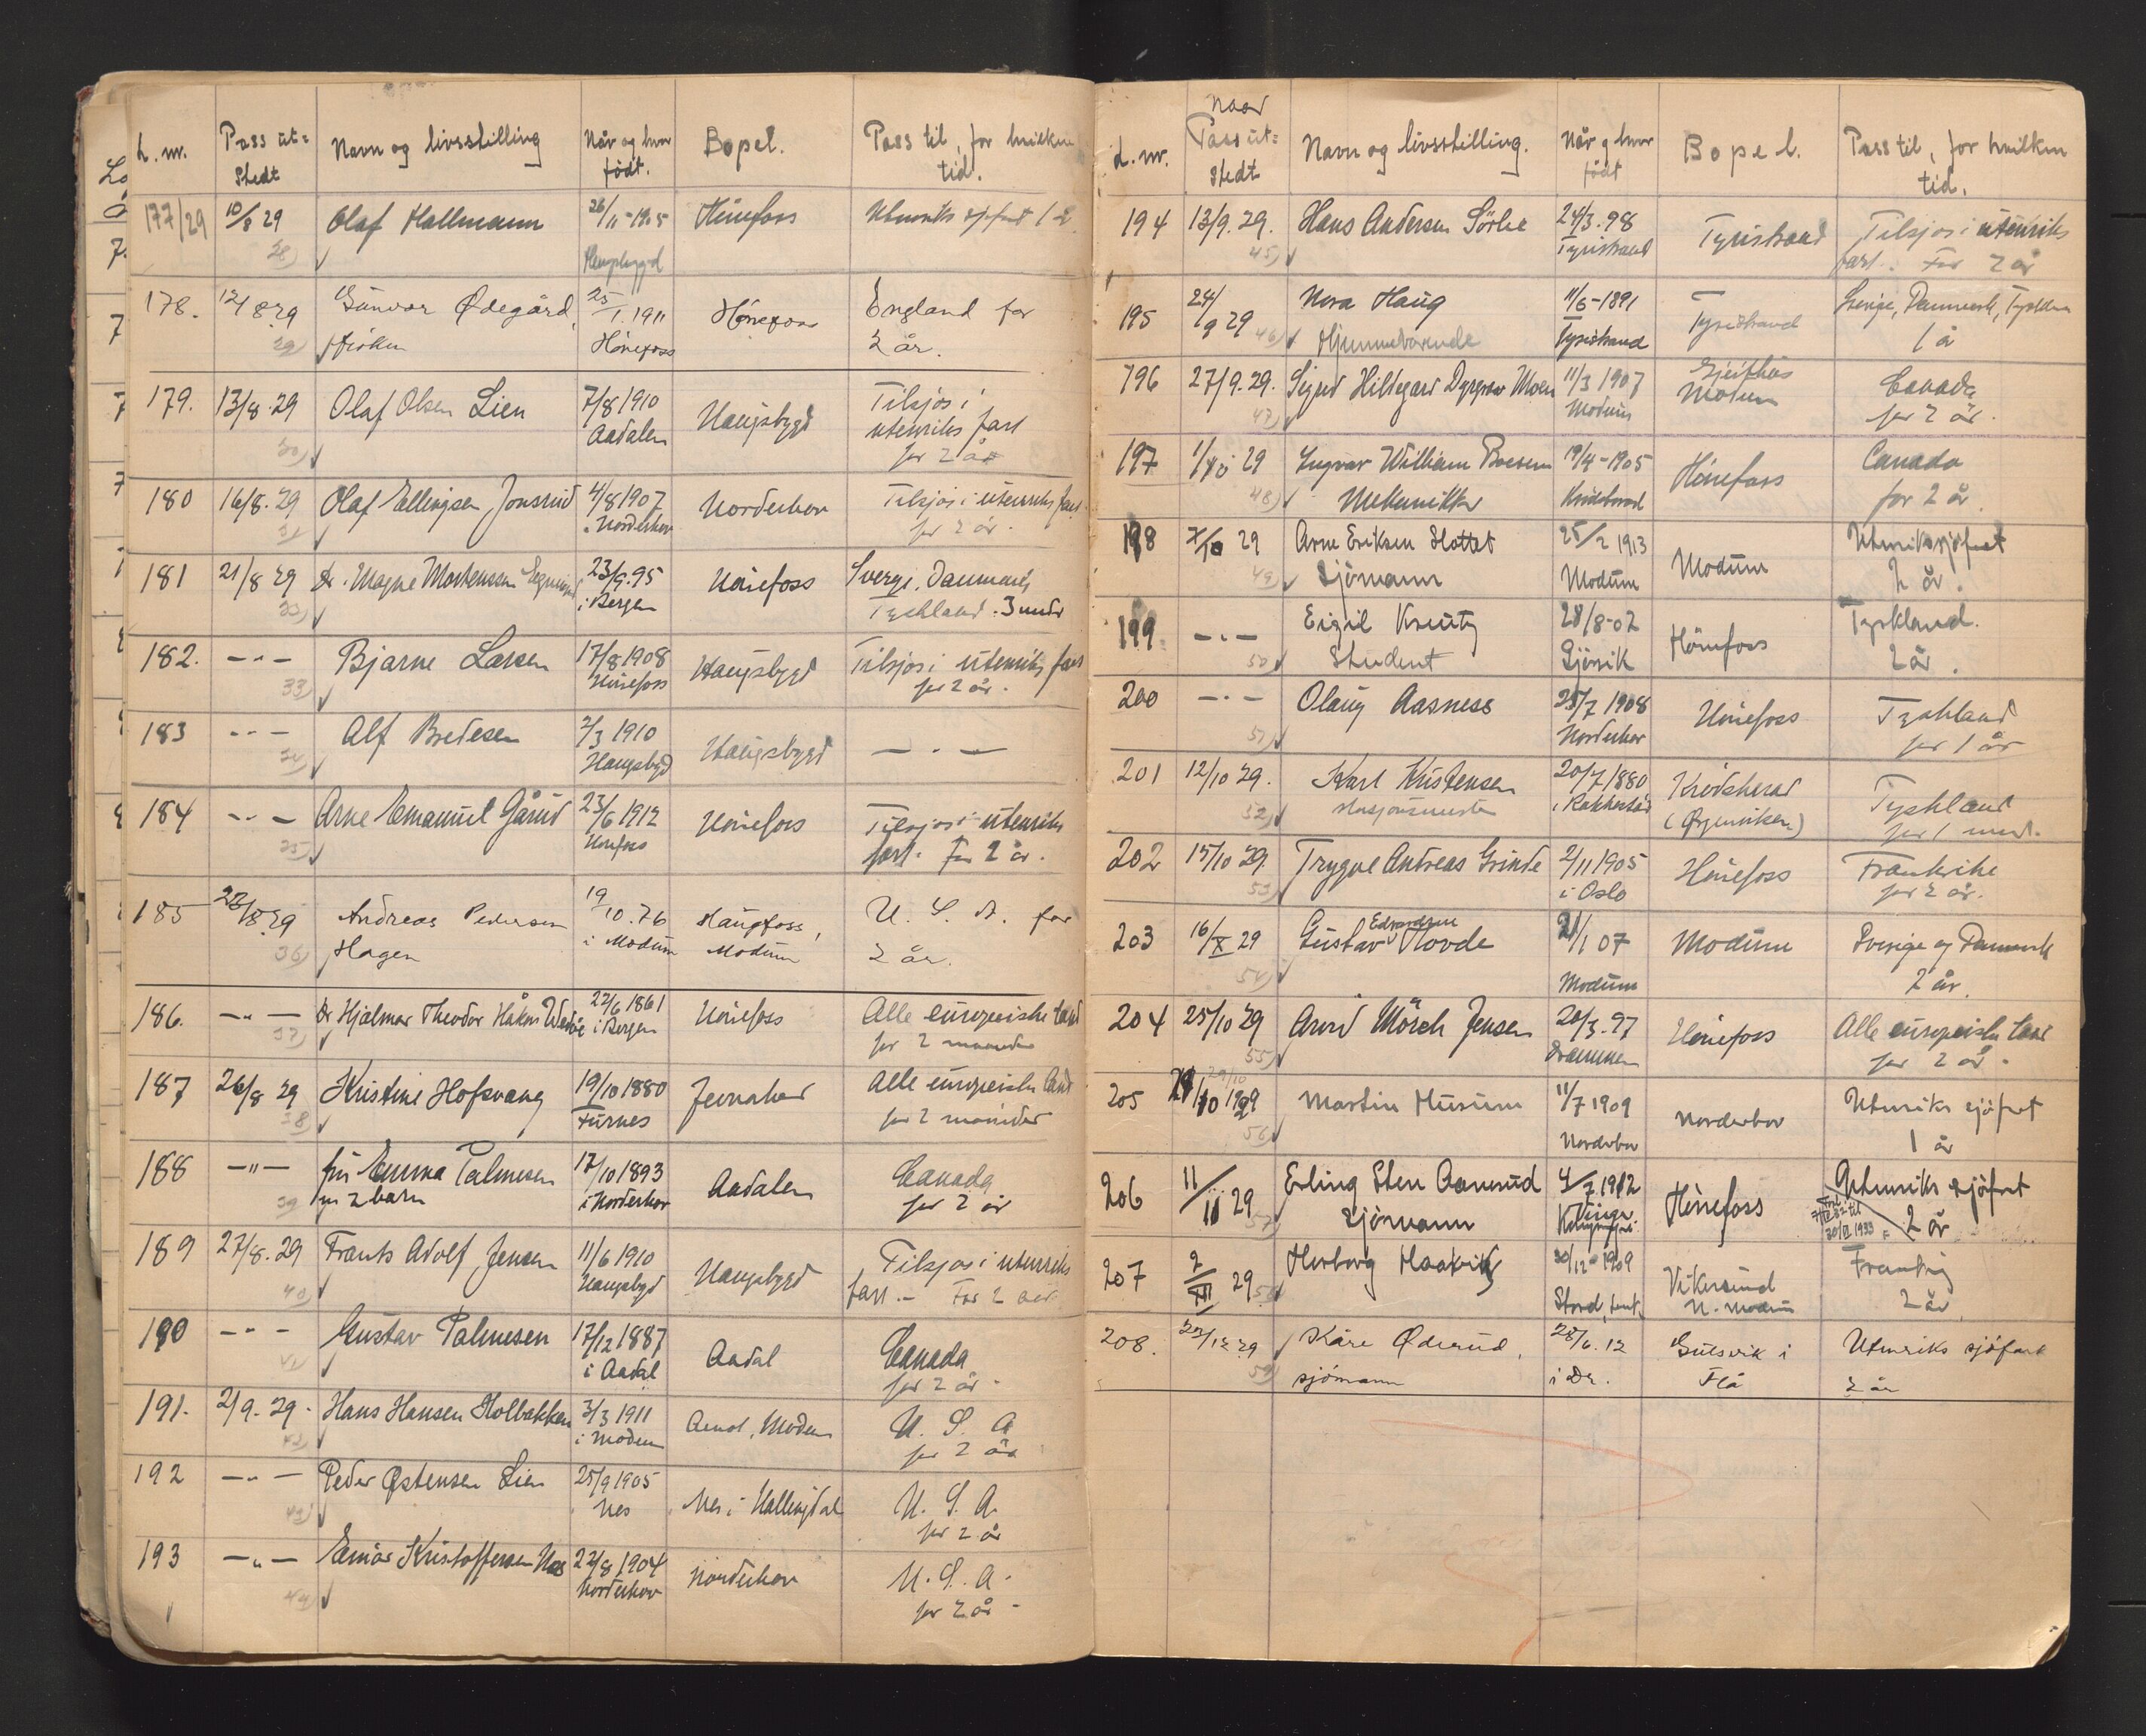 L. nr. Pass ut= Navn og livsstilling Når og hvor Bopel. Pass til, for hvilken
stedt født. tid.
177/29 10/8 29 Olaf Hallmann 26/11-1905 Hönefoss Utenriks sjøfart
28) Haugsbygd
178. 12/8 29 Gunvor Ødegård, 25/1.1911 Hönefoss England for
29) frøken Hönefoss 2 år.
179. 13/8 29 Olaf Olsen Lien 7/8 1910 Haugsbygd Tilsjøs i
30) Aadalen utenriks fart
for 2 år
180 16/8. 29 Olaf Ellingsen Jonsrud 4/8 1907 Norderhov Tilsjøs i utenriks fart
31) i Norderhov for 2 år.
181 21/8 29 Dr. Magne Mortensson 23/9.95 Hönefoss Sverge, Danmark,
32) i Bergen Tyskland. 3 mndr
182. -"- Bjarne Larsen 17/8 1908 Haugsbygd Tilsjøs i utenriks fart
33) Hönefoss for 2 år.
183 -"- Alf Bredesen 2/3 1910 Haugsbygd -"-
34) Haugsbygd
184 -"- Arne Emanuel Gårud 23/6 1912 Hönefoss Tilsjøs i utenriks
35) Hönefoss fart. For 2 år.
185 22/8.29 Andreas Pedersen 19/10.76 Haugfoss, U. S. A. for
36) Hagen i Modum Modum 2 år.
186. -"- Dr Hjalmar Theodor Håkon 22/6 1861 Hönefoss Alle europeiske land
37) i Bergen for 2 måneder
187 26/8 29 Kristine Hofsvang 19/10 1880 Jevnaker Alle europeiske land
38) Furnes for 2 måneder
188 -"- fru Emma Palmesen 17/10 1893 Aadalen Canada
39) m 2 barn i Norderhov for 2 år
189 27/8.29 Frants Adolf Jensen 11/6 1910 Haugsbygd Tilsjøs i utenriks
40) Haugsbygd fart.- For 2 aar
190 -"- Gustav Palmesen 17/12 1887 Aadal Canada
41) i Aadal for 2 år.
191. 2/9.29. Hans Hansen Kolbakken 3/3 1911 Aamot, Modum U. S. A
42) i Modum for 2 år
192 -"- Peder Østensen Lien 25/9 1905 Nes i Hallingdal U. S. A.
43) Nes for 2 år
193 -"- Einar Kristoffersen 22/8 1904 Norderhov U. S. A.
44) Norderhov for 2 år.
Naar
L. nr. Pass ut= Navn og livsstilling. Når og hvor Bopel. Pass til, for hvilken
stedt født tid.
194 13/9. 29. Hans Andersen Sörlie 24/3.98 Tyristrand Tilsjøs i utenriks
45) Tyristrand fart. For 2 år
195 24/9 29 Nora Haug 11/6-1891 Tyristrand Sverige, Danmark, Tyskland
46) Hjemmeværende Tyristrand 1 år
196 27/9.29. Sigrid Hildegard Moen 11/3 1907 Geithus Canada
47) Modum Modum for 2 år.
197 1/10 29 Ingvar William 19/4-1905 Hönefoss Canada
48) Mekaniker for 2 år
198 7/10 29 Arne Eriksen Slottet 25/2 1913 Modum Utenrikssjöfart
49) Sjömann Modum 2 år.
199 -"- Eigil Kreutz 28/8-02 Hönefoss Tyskland.
50) Student Gjövik 2 år.
200 -"- Olaug Aasness 25/7 1908 Hönefoss Tyskland
51) Norderhov for 1 år
201 12/10 29. Karl Kristensen 20/7 1880 Krødsherad Tyskland
52) stasjonsmester i Rakkestad (Ørgenviken) for 1 mnd.
202 15/10 29. Trygve Andreas Grinde 2/11 1905 Hönefoss Frankrike
53) i Oslo for 2 år.
203 16/X 29 Gustav Edvardsen Hovde 21/1 07 Modum Sverige og Danmark
54) Modum 2 år.
204 25/10 29 Arvid Mörch Jensen 20/3.97 Hönefoss Alle europeiske land
55) Drammen for 2 år.
29/10
205 29/10 1929 Martin Husum 11/7 1909 Norderhov Utenriks sjöfart
56) Norderhov 1 år
206 11/11 29 Erling Sten Aamrud 4/7.1912 Hönefoss Utenriks sjöfart
57) Sjömann 2 år
207 2/XII 29 Herborg Haakvik 30/12 1909 Vikersund Frankrig
58) Stord N. Modum 2 år
208. 23/12 29 Kåre Øderud, 28/6.12 Gulsvik i Utenriks sjöfart
59) sjömann i Dr. Flå 2 år